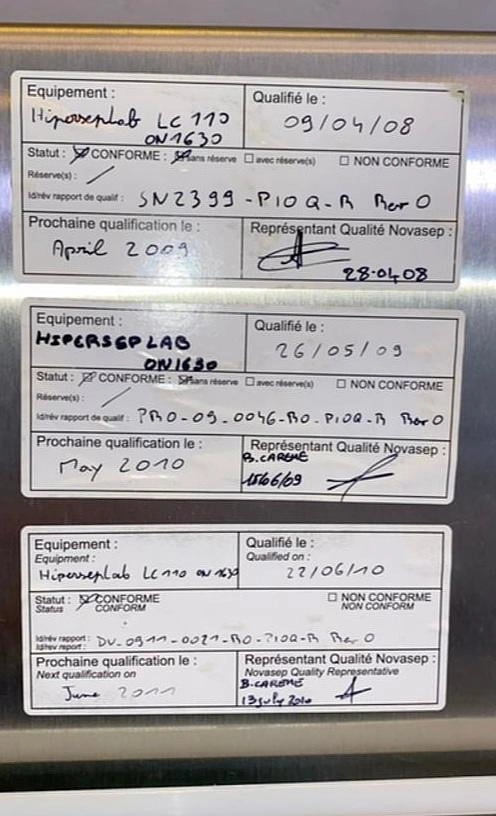 Equipement : Qualifié le :
Hipersep Lab LC 110 09/04/08
ON1630
Statut : CONFORME : sans réserve avec réserve(s) NON CONFORME
Réserve(s) : /
Id/rév rapport de qualif : SN2399-PIOQ-R Rev 0
Prochaine qualification le : Représentant Qualité Novasep :
April 2009
28.04.08
Equipement : Qualifié le :
HIPERSEP LAB 26/05/09
ON1630
Statut : CONFORME : sans réserve avec réserve(s) NON CONFORME
Réserve(s) : /
Id/rév rapport de qualif : PRO-09-0046-RO-PIOQ-R Rev 0
Prochaine qualification le : Représentant Qualité Novasep :
May 2010 B.CAREME
15/06/09
Equipement : Qualifié le :
Equipment : Qualified on :
Hipersep Lab LC 110 ON1630 22/06/10
Statut : CONFORME NON CONFORME
Status CONFORM NON CONFORM
Id/rév rapport : DV-0911-0021-RO-PIOQ-R Rev 0
Id/rev report :
Prochaine qualification le : Représentant Qualité Novasep :
Next qualification on Novasep Quality Representative
June 2011 B.CAREME
13 july 2010